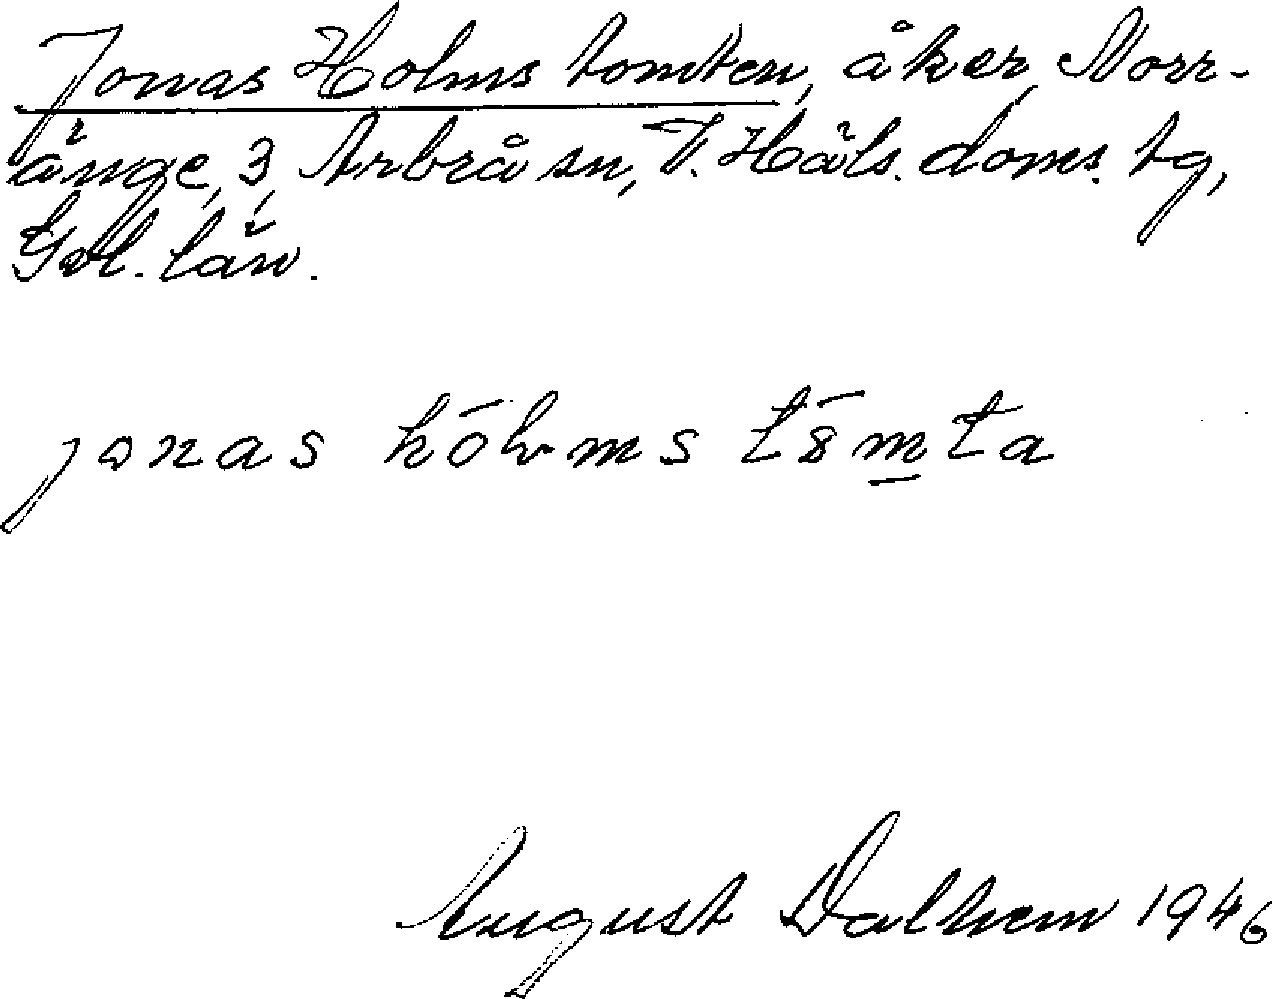 Jonas Holms tomten, åker, Norr-
änge, 3, Arbrå sn, V. Häls. doms. tg,
Gvl. län.
jonas hōlvms tōmta
August Dalhem 1946